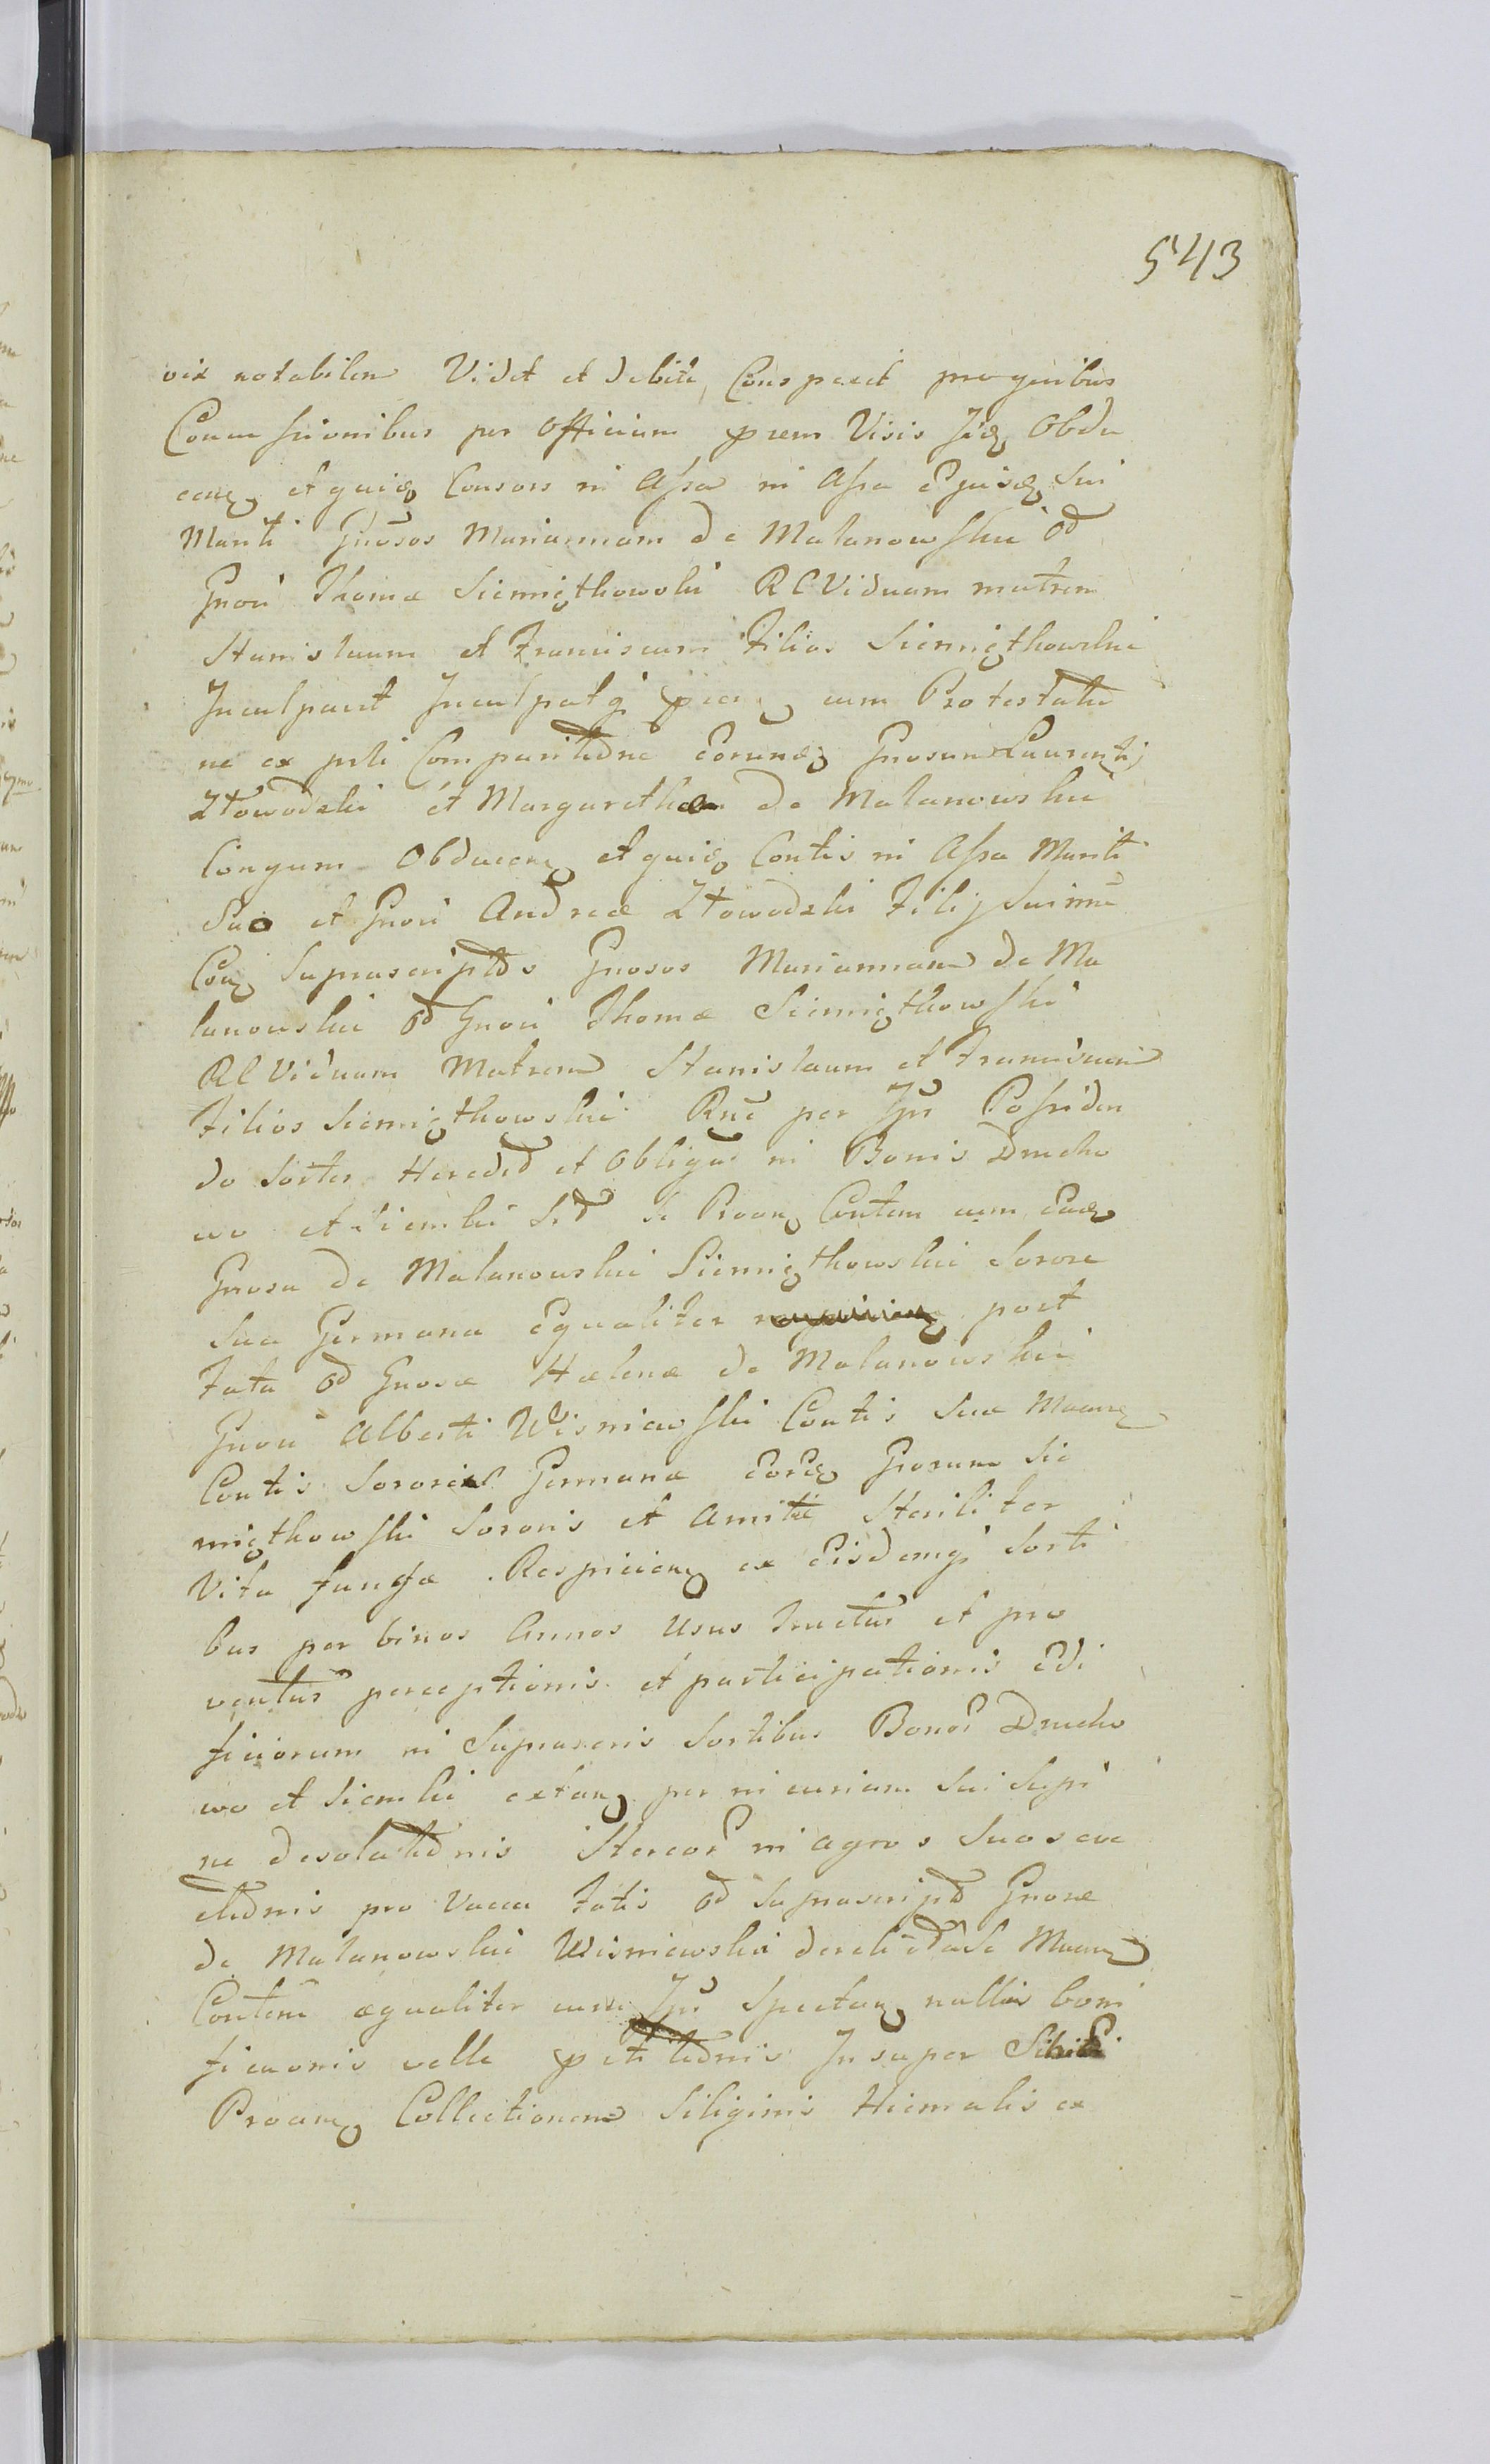 543
vix notabilem Videt et debite Conspexit pro quibus
Commissionibus per Officium prem Visis Obdu
cen et quid Consors in Assa in Assa Ejusd Sui
Mariti Gnosos Mariannam de Malanowskie od
Gnoii Thomæ Siemiątkowski RC Viduam matrem
Stanislaum et Franciscum Filios Siemiątkowskie
Inculpavit Inculpatq cum Protestatu
ne ex prti Comparitione Eorund Gnosum Laurentij
Złowodzki et Margarethæ de Malanowskie
Conjgum Obducen et quid Contis in Assa Mariti
Suo et Gnoii Andreæ Złowodzki Filij Sui
Con Suprascriptos Gnosos Mariannam de Ma
lanowskie od Gnoii Thomæ Siemiątkowski
RC Viduam Matrem Stanislaum et Franciscum
Filios Siemiątkowskie Rne per Ipn Possiden
do Sortes Heredit et Obligat in Bonis Drucho
wo et Siemki Contem cum Ead
Gnosa de Malanowskie Siemiątkowskie Sorore
Sua Germana Equaliter post
Fata od Gnosæ Helenæ de Malanowskie
Gnoii Alberti Wisniewski Contis Suæ
Contis Sororis Germanæ Gnosum Sie
miątkowski Sororis et Amitæ Steriliter
Vita functæ Respicien ex Eisdemq Sorti
bus per binos Annos Usus fructus et pro
ventus perceptionis et participationis Edi
ficiorum in Suprascris Sortibus Bonor Drucho
wo et Siemki extan per in curiam Sui Supi
ne desolationis Stercor in agros Suos eve
ctionis pro Vacca Fatis od suprascript Gnosæ
de Malanowskie Wisniewska
Contem æqualiter cum Ipn Spectan nullis boni
ficaonis velle Insuper Sibi
Proan Collectionem Siliginis Hiemalis ex